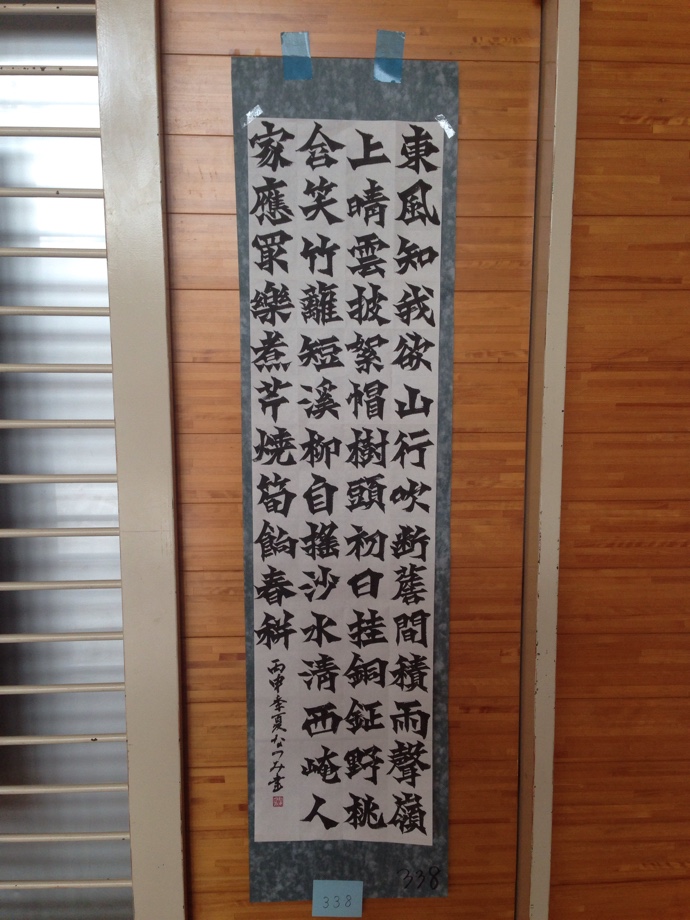 東風知我欲山行吹断簷間積雨聲嶺
上晴雲披絮帽樹頭初日挂銅鉦野桃
含笑竹籬短溪柳自搖沙水清西崦人
家應冣樂煮芹燒筍餉春耕
丙申季夏なつみ書
338
338